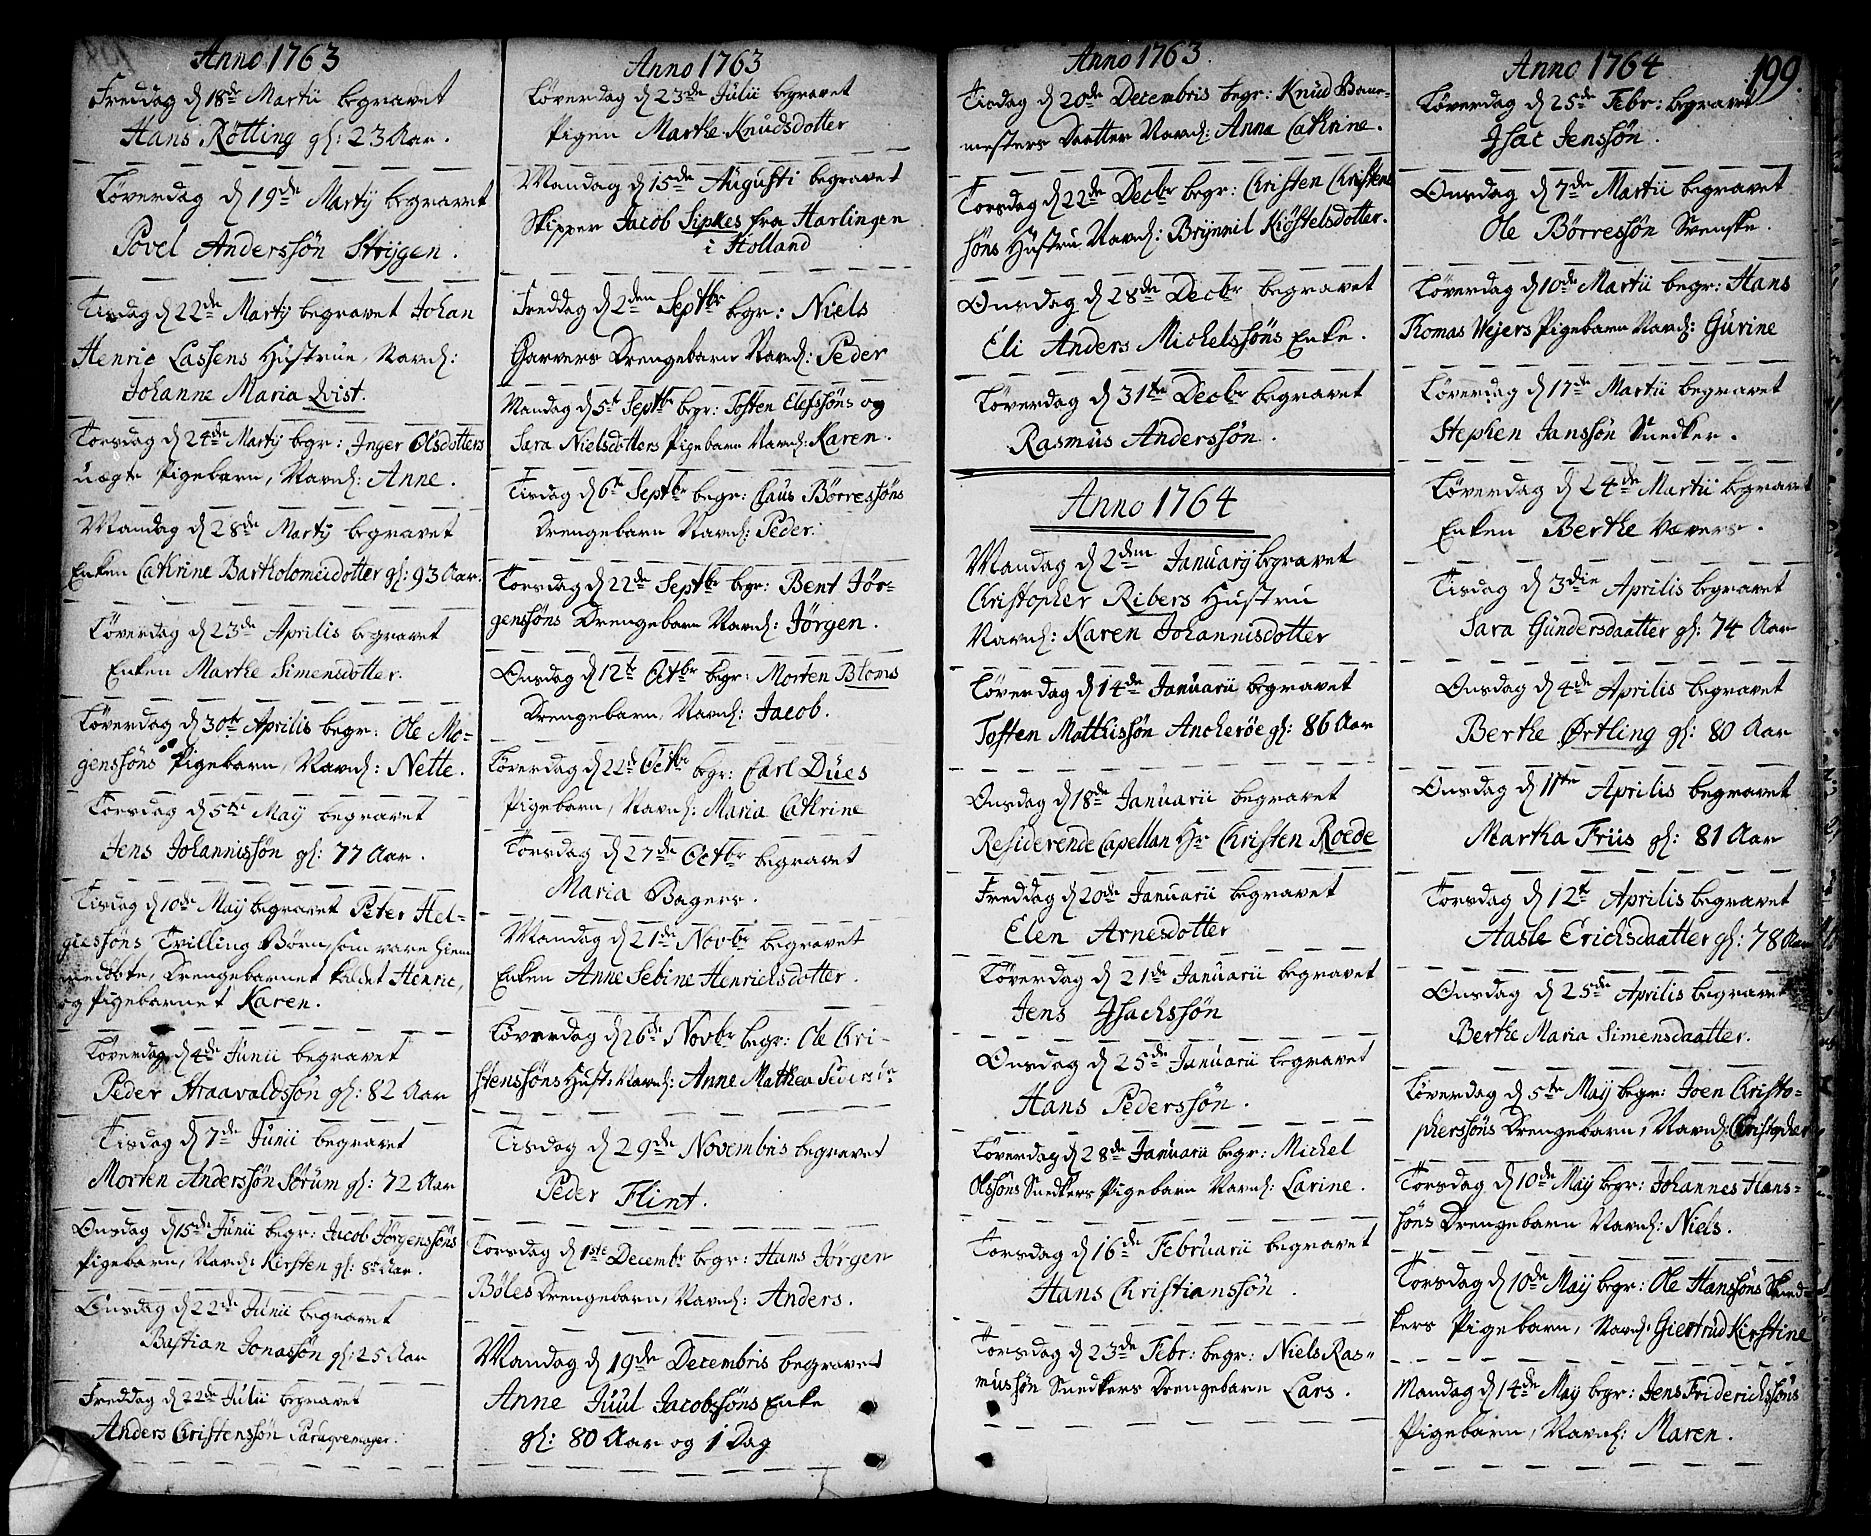 Anno 1763
Freddag d 18de Martii begravet
Hans Rötting gl: 23 Aar.
Løverdag d 19de Martÿ begravet
Povel Anderssøn Strÿgen.
Tisdag d 22de Martÿ begravet Johan
Henric Lassens Hustrue, Navnl:
Johanne Maria Qvist.
Torsdag d 24de Martÿ begr: Inger Olsdotters
uægte Pigebarn, Navnl: Anne.
Mandag d 28de Martÿ begravet
Enken Cathrine Bartholomeidotter gl: 93 Aar.
Løverdag d 23de Aprilis begravet
Enken Marthe Simensdotter.
Løverdag d 30te Aprilis begr: Ole Mo-
genssøns Pigebarn, Navnl: Nette.
Torsdag d 5te Maÿ begravet
Jens Johannissøn gl: 77 Aar.
Tisdag d 10de Maÿ begravet Peter Hel-
giessøns Tvilling Børn, som vare hiem-
medøbte, Drengebarnet kaldet Henric,
og Pigebarnet Karen.
Løverdag d 4de Junii begravet
Peder Haavaldssøn gl: 82 Aar
Tisdag d 7de Junii begravet
Morten Anderssøn Sørum gl: 72 Aar
Onsdag d 15de Junii begr: Jacob Jørgenssøns
Pigebarn, Navnl: Kirsten gl: 8 Aar.
Onsdag d 22de Junii begravet
Bastian Jonassøn gl: 25 Aar
Freddag d 22de Julii begravet
Anders Christenssøn
Anno 1763
Løverdag d 23de Julii begravet
Pigen Marthe Knudsdotter
Mandag d 15de Augusti begravet
Skipper Jacob Sipkes fra Harlingen
i Holland
Freddag d 2den Septbr begr: Niels
Garvers Drengebarn Navnl: Peder
Mandag d 5te Septbr begr: Tosten Elefssøns og
Sara Nielsdotters Pigebarn Navnl: Karen.
Tisdag d 6te Septbr begr: Claus Børressøns
Drengebarn Navnl: Peder.
Torsdag d 22de Septbr begr: Bent Jør-
genssøns Drengebarn Navnl: Jørgen.
Onsdag d 12te Octbr begr: Morten Bloms
Drengebarn, Navnl: Jacob.
Løverdag d 22de Octbr begr: Carl Dües
Pigebarn, Navnl: Maria Cathrine
Torsdag d 27de Octbr begravet
Maria Bagers.
Mandag d 21de Novbr begravet
Enken Anne Sebine Henrichsdotter.
Løverdag d 26de Novbr begr: Ole Chri-
stenssøns Hust: Navnl: Anne Mathea
Tisdag d 29de Novembris begravet
Peder Flint.
Torsdag d 1ste Decembr begr: Hans Jørgen
Bøles Drengebarn, Navnl: Anders.
Mandag d 19de Decembris begravet
Anne Juul Jacobssøns Enke
gl: 80 Aar og 1 Dag
Anno 1763.
Tisdag d 20de Decembris begr: Knud Bane-
mesters Daatter Navnl: Anna Cathrine.
Torsdag d 22de Decbr begr: Christen Christens
søns Hustru Navnl: Brÿnnil Kiøstelsdotter.
Onsdag d 28de Decbr begravet
Eli Anders Michelssøns Enke.
Løverdag d 31te Decbr begravet
Rasmus Anderssøn.
Anno 1764
Mandag d 2den Januarÿ begravet
Christopher Ribers Hustru
Navnl: Karen Johannisdotter
Løverdag d 14de Januarii begravet
Tosten Matthissøn Ancherøe gl: 86 Aar
Onsdag d 18de Januarii begravet
Residerende Capellan Hr Christen Roede
Freddag d 20de Januarii begravet
Elen Arnesdotter
Løverdag d 21de Januarii begravet
Jens Isachssøn
Onsdag d 25de Januarii begravet
Hans Pederssøn.
Løverdag d 28de Januarii begr: Michel
Olssøns Snedkers Pigebarn Navnl: Larine.
Torsdag d 16de Februarii begravet
Hans Christianssøn.
Torsdag d 23de Febr: begr: Niels Ras-
mussøn Snedkers Drengebarn Lars.
Anno 1764 199.
Løverdag d 25de Febr: begravet
Isac Jenssøn.
Onsdag d 7de Martii begravet
Ole Børressøn Svenske.
Løverdag d 10de Martii begr: Hans
Thomas Wejers Pigebarn Navnl: Gurine
Løverdag d 17de Martii begravet
Stephen Janssøn Snedker.
Løverdag d 24de Martii begravet
Enken Berthe Vævers.
Tisdag d 3die Aprilis begravet
Sara Gundersdaatter gl: 74 Aar
Onsdag d 4de Aprilis begravet
Berthe Ørtling gl: 80 Aar
Onsdag d 11te Aprilis begravet
Martha Friis gl: 81 Aar
Torsdag d 12te Aprilis begravet
Aasle Erichsdaatter gl: 78 Aar
Onsdag d 25de Aprilis begravet
Berthe Maria Simensdaatter.
Løverdag d 5te Maÿ begr: Joen Christo-
pherssøns Drengebarn, Navnl: Christopher
Torsdag d 10de Maÿ begr: Johannes Hans-
søns Drengebarn Navnl: Niels.
Torsdag d 10de Maÿ begr: Ole Hanssøns Sned-
kers Pigebarn, Navnl: Giertrud Kirstine
Mandag d 14de Maÿ begr: Jens Friderichssøns
Pigebarn, Navnl: Maren.